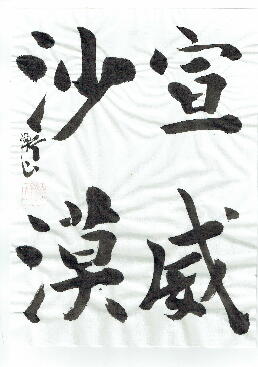 宣威
沙漠